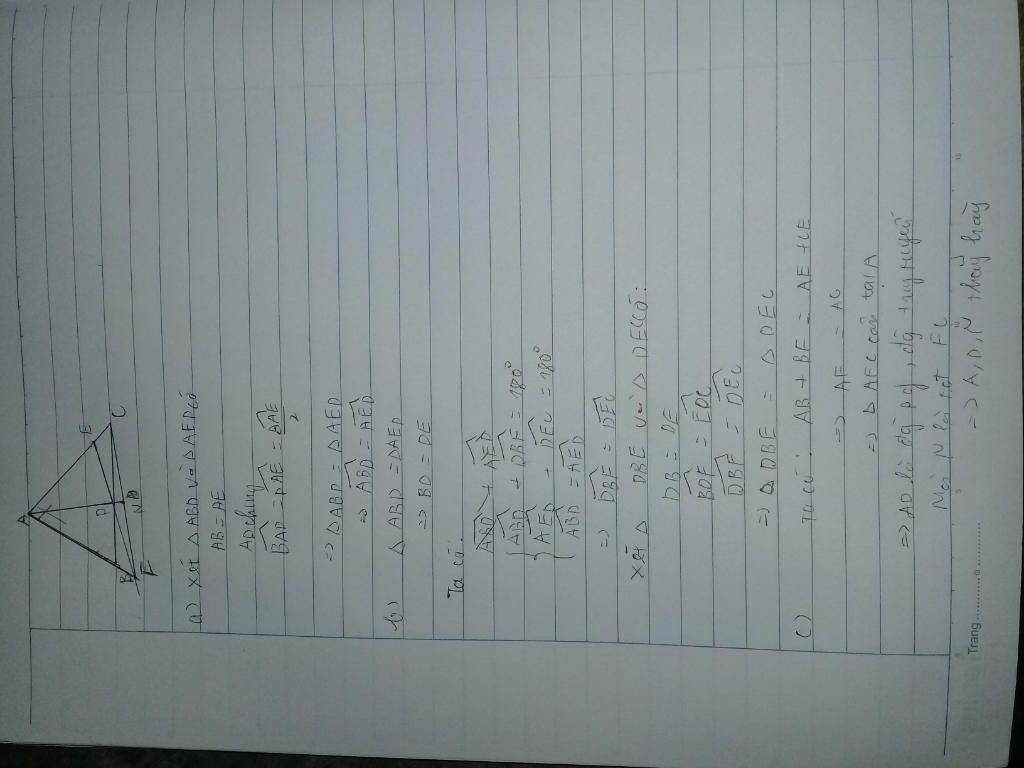 A
B
E
C
D
N
F
a) Xét △ABD và △AED có
AB = AE
AD chung
BAD = DAE = BAE/2
=> △ABD = △AED
=> ABD = AED
b) △ABD = △AED
=> BD = DE
Ta có:
ABD + DBF = 180°
AED + DEC = 180°
ABD = AED
=> DBF = DEC
Xét △ DBE và △ DEC có:
DB = DE
BDF = EDC
DBF = DEC
=> △ DBE = △ DEC
c) Ta có: AB + BE = AE + CE
=> AF = AC
=> △ AFC cân tại A
=> AD là đg pg, đg trung tuyến
Mà N là tđ FC
=> A, D, N thẳng hàng
Trang